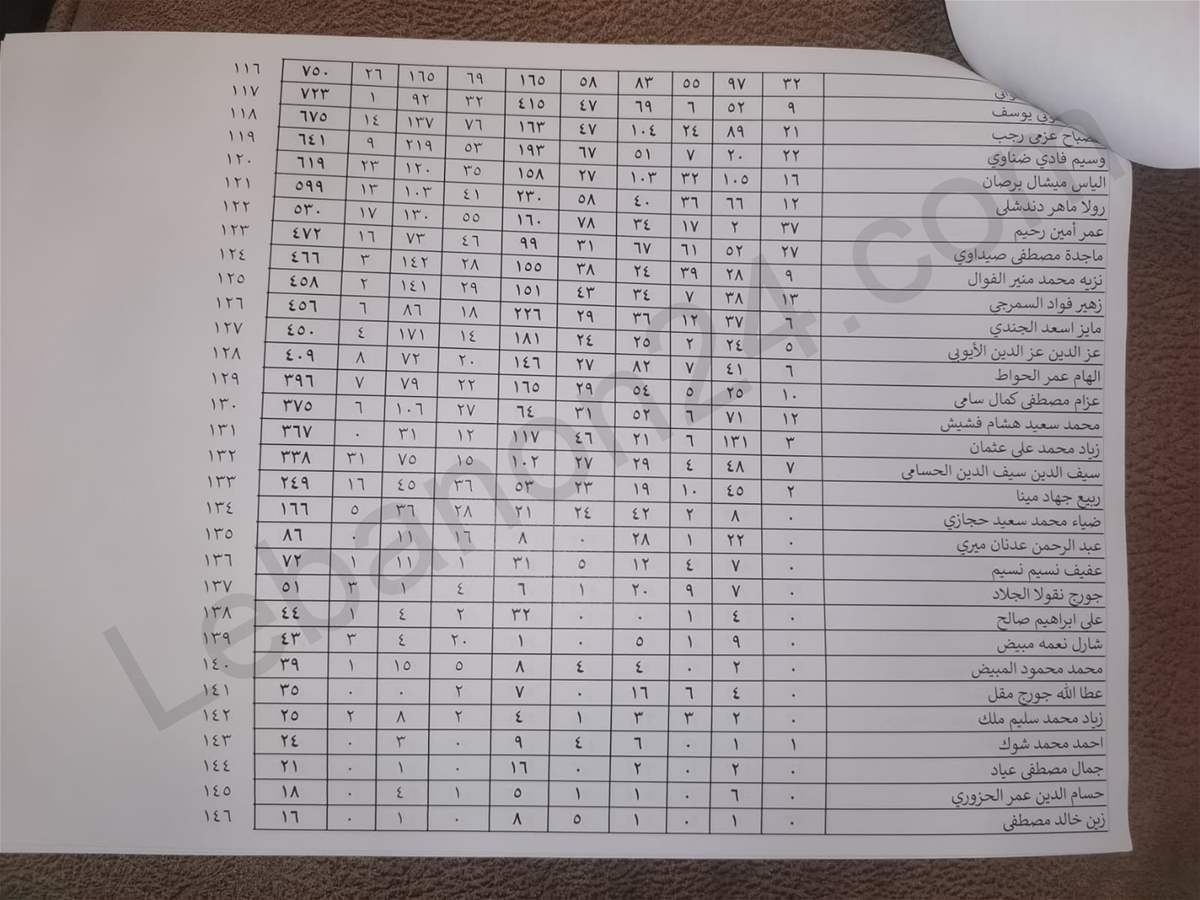 ٣٢ ٩٧ ٥٥ ٨٣ ٥٨ ١٦٥ ٦٩ ١٦٥ ٢٦ ٧٥٠ ١١٦
يوسف ٩ ٥٢ ٦ ٦٩ ٤٧ ٤١٥ ٣٢ ٩٢ ١ ٧٢٣ ١١٧
عزمي رجب ٢١ ٨٩ ٢٤ ١٠٤ ٤٧ ١٦٣ ٧٦ ١٣٧ ١٤ ٦٧٥ ١١٨
وسيم فادي ضناوي ٢٢ ٢٠ ٧ ٥١ ٦٧ ١٩٣ ٥٣ ٢١٩ ٩ ٦٤١ ١١٩
الياس ميشال برصان ١٦ ١٠٥ ٣٢ ١٠٣ ٢٧ ١٥٨ ٣٥ ١٢٠ ٢٣ ٦١٩ ١٢٠
رولا ماهر دندشلى ١٢ ٦٦ ٣٦ ٤٠ ٥٨ ٢٣٠ ٤١ ١٠٣ ١٣ ٥٩٩ ١٢١
عمر أمين رحيم ٣٧ ٢ ١٧ ٣٤ ٧٨ ١٦٠ ٥٥ ١٣٠ ١٧ ٥٣٠ ١٢٢
ماجدة مصطفى صيداوي ٢٧ ٥٢ ٦١ ٦٧ ٣١ ٩٩ ٤٦ ٧٣ ١٦ ٤٧٢ ١٢٣
نزيه محمد منير الفوال ٩ ٢٨ ٣٩ ٢٤ ٣٨ ١٥٥ ٢٨ ١٤٢ ٣ ٤٦٦ ١٢٤
زهير فواد السمرجي ١٣ ٣٨ ٧ ٣٤ ٤٣ ١٥١ ٢٩ ١٤١ ٢ ٤٥٨ ١٢٥
مايز اسعد الجندي ٦ ٣٧ ١٢ ٣٦ ٢٩ ٢٢٦ ١٨ ٨٦ ٦ ٤٥٦ ١٢٦
عز الدين عز الدين الأيوبى ٥ ٢٤ ٢ ٢٥ ٢٤ ١٨١ ١٤ ١٧١ ٤ ٤٥٠ ١٢٧
الهام عمر الحواط ٦ ٤١ ٧ ٨٢ ٢٧ ١٤٦ ٢٠ ٧٢ ٨ ٤٠٩ ١٢٨
عزام مصطفى كمال سامى ١٠ ٢٥ ٥ ٥٤ ٢٩ ١٦٥ ٢٢ ٧٩ ٧ ٣٩٦ ١٢٩
محمد سعيد هشام فشيش ١٢ ٧١ ٦ ٥٢ ٣١ ٦٤ ٢٧ ١٠٦ ٦ ٣٧٥ ١٣٠
زياد محمد على عثمان ٣ ١٣١ ٦ ٢١ ٤٦ ١١٧ ١٢ ٣١ ٠ ٣٦٧ ١٣١
سيف الدين سيف الدين الحسامى ٧ ٤٨ ٤ ٢٩ ٢٧ ١٠٢ ١٥ ٧٥ ٣١ ٣٣٨ ١٣٢
ربيع جهاد مينا ٢ ٤٥ ١٠ ١٩ ٢٣ ٥٣ ٣٦ ٤٥ ١٦ ٢٤٩ ١٣٣
ضياء محمد سعيد حجازي ٠ ٨ ٢ ٤٢ ٢٤ ٢١ ٢٨ ٣٦ ٥ ١٦٦ ١٣٤
عبد الرحمن عدنان ميري ٠ ٢٢ ١ ٢٨ ٠ ٨ ١٦ ١١ ٠ ٨٦ ١٣٥
عفيف نسيم نسيم ٠ ٧ ٤ ١٢ ٥ ٣١ ١ ١١ ١ ٧٢ ١٣٦
جورج نقولا الجلاد ٠ ٧ ٩ ٢٠ ١ ٦ ٤ ١ ٣ ٥١ ١٣٧
على ابراهيم صالح ٠ ٤ ١ ٠ ٠ ٣٢ ٢ ٤ ١ ٤٤ ١٣٨
شارل نعمه مبيض ٠ ٩ ١ ٥ ٠ ١ ٢٠ ٤ ٣ ٤٣ ١٣٩
محمد محمود المبيض ٠ ٢ ٠ ٤ ٤ ٨ ٥ ١٥ ١ ٣٩ ١٤٠
عطا الله جورج مقل ٠ ٤ ٦ ١٦ ٠ ٧ ٢ ٠ ٠ ٣٥ ١٤١
زياد محمد سليم ملك ٠ ٢ ٣ ٣ ١ ٤ ٢ ٨ ٢ ٢٥ ١٤٢
احمد محمد شوك ١ ١ ٠ ٦ ٤ ٩ ٠ ٣ ٠ ٢٤ ١٤٣
جمال مصطفى عياد ٠ ٢ ٠ ٢ ٠ ١٦ ٠ ١ ٠ ٢١ ١٤٤
حسام الدين عمر الحزوري ٠ ٦ ٠ ١ ١ ٥ ١ ٤ ٠ ١٨ ١٤٥
زين خالد مصطفى ٠ ١ ٠ ١ ٥ ٨ ٠ ١ ٠ ١٦ ١٤٦
Lebanon24.com